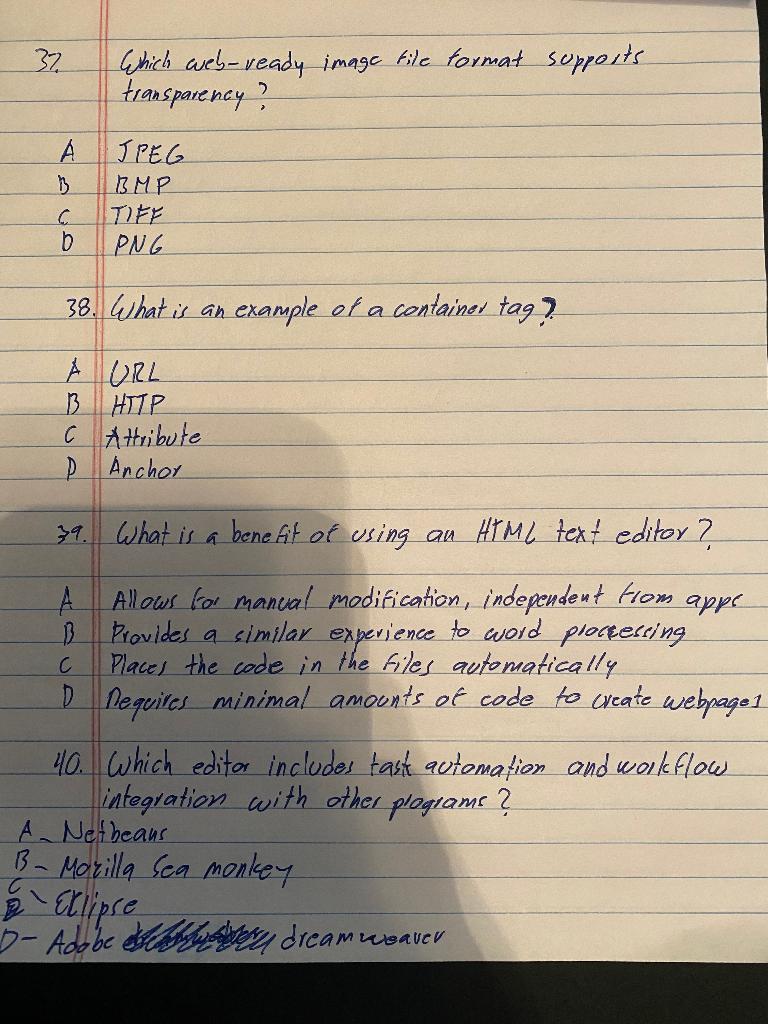 37. Which web-ready image file format supports
transparency?
A JPEG
B BMP
C TIFF
D PNG
38. What is an example of a container tag?
A URL
B HTTP
C Attribute
D Anchor
39. What is a benefit of using an HTML text editor?
A Allows for manual modification, independent from apps
B Provides a similar experience to word proccessing
C Places the code in the files automatically
D Requires minimal amounts of code to create webpages
40. Which editor includes task automation and workflow
integration with other programs?
A - Netbeans
B - Mozilla Sea monkey
C - Eclipse
D - Adobe dreamweaver